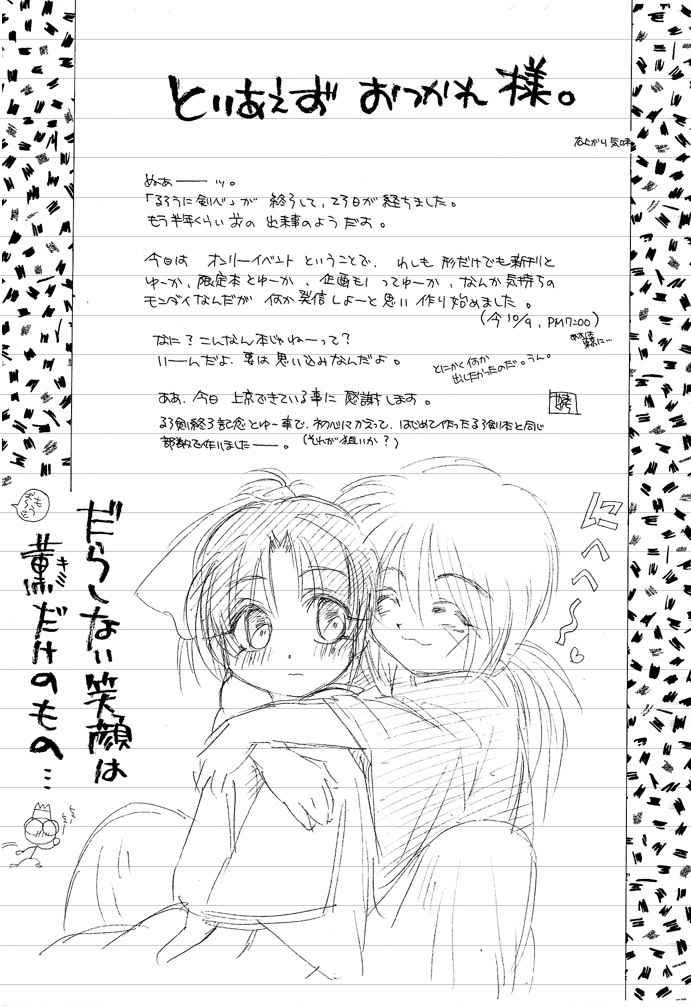 とりあえず おつかれ 様。
右上がり気味
ぬぁーーッ。
「るろうに剣心」が 終了して、23日が経ちました。
もう半年くらい前の 出来事のようだよ。
今日は オンリーイベント ということで、わしも 形だけでも新刊と
ゆーか、限定本とゆーか、企画もんってゆーか、なんか気持ちの
モンダイなんだが 何か発信しよーと思い 作り始めました。
(今 10/9、PM7:00)
なに?こんなん本じゃねーって?
いーんだよ、要は思い込みなんだよ。
とにかく何か
出したかったのだ。うん。
ああ、今日 上京できている事に 感謝します。
るろ剣終了記念とゆー事で、初心にかえって、はじめて作ったるろ剣本と同じ
部数で作りましたーー。(それが狙いか?)
だらしない笑顔は
薫だけのもの…
キミ
にへへ〜♡